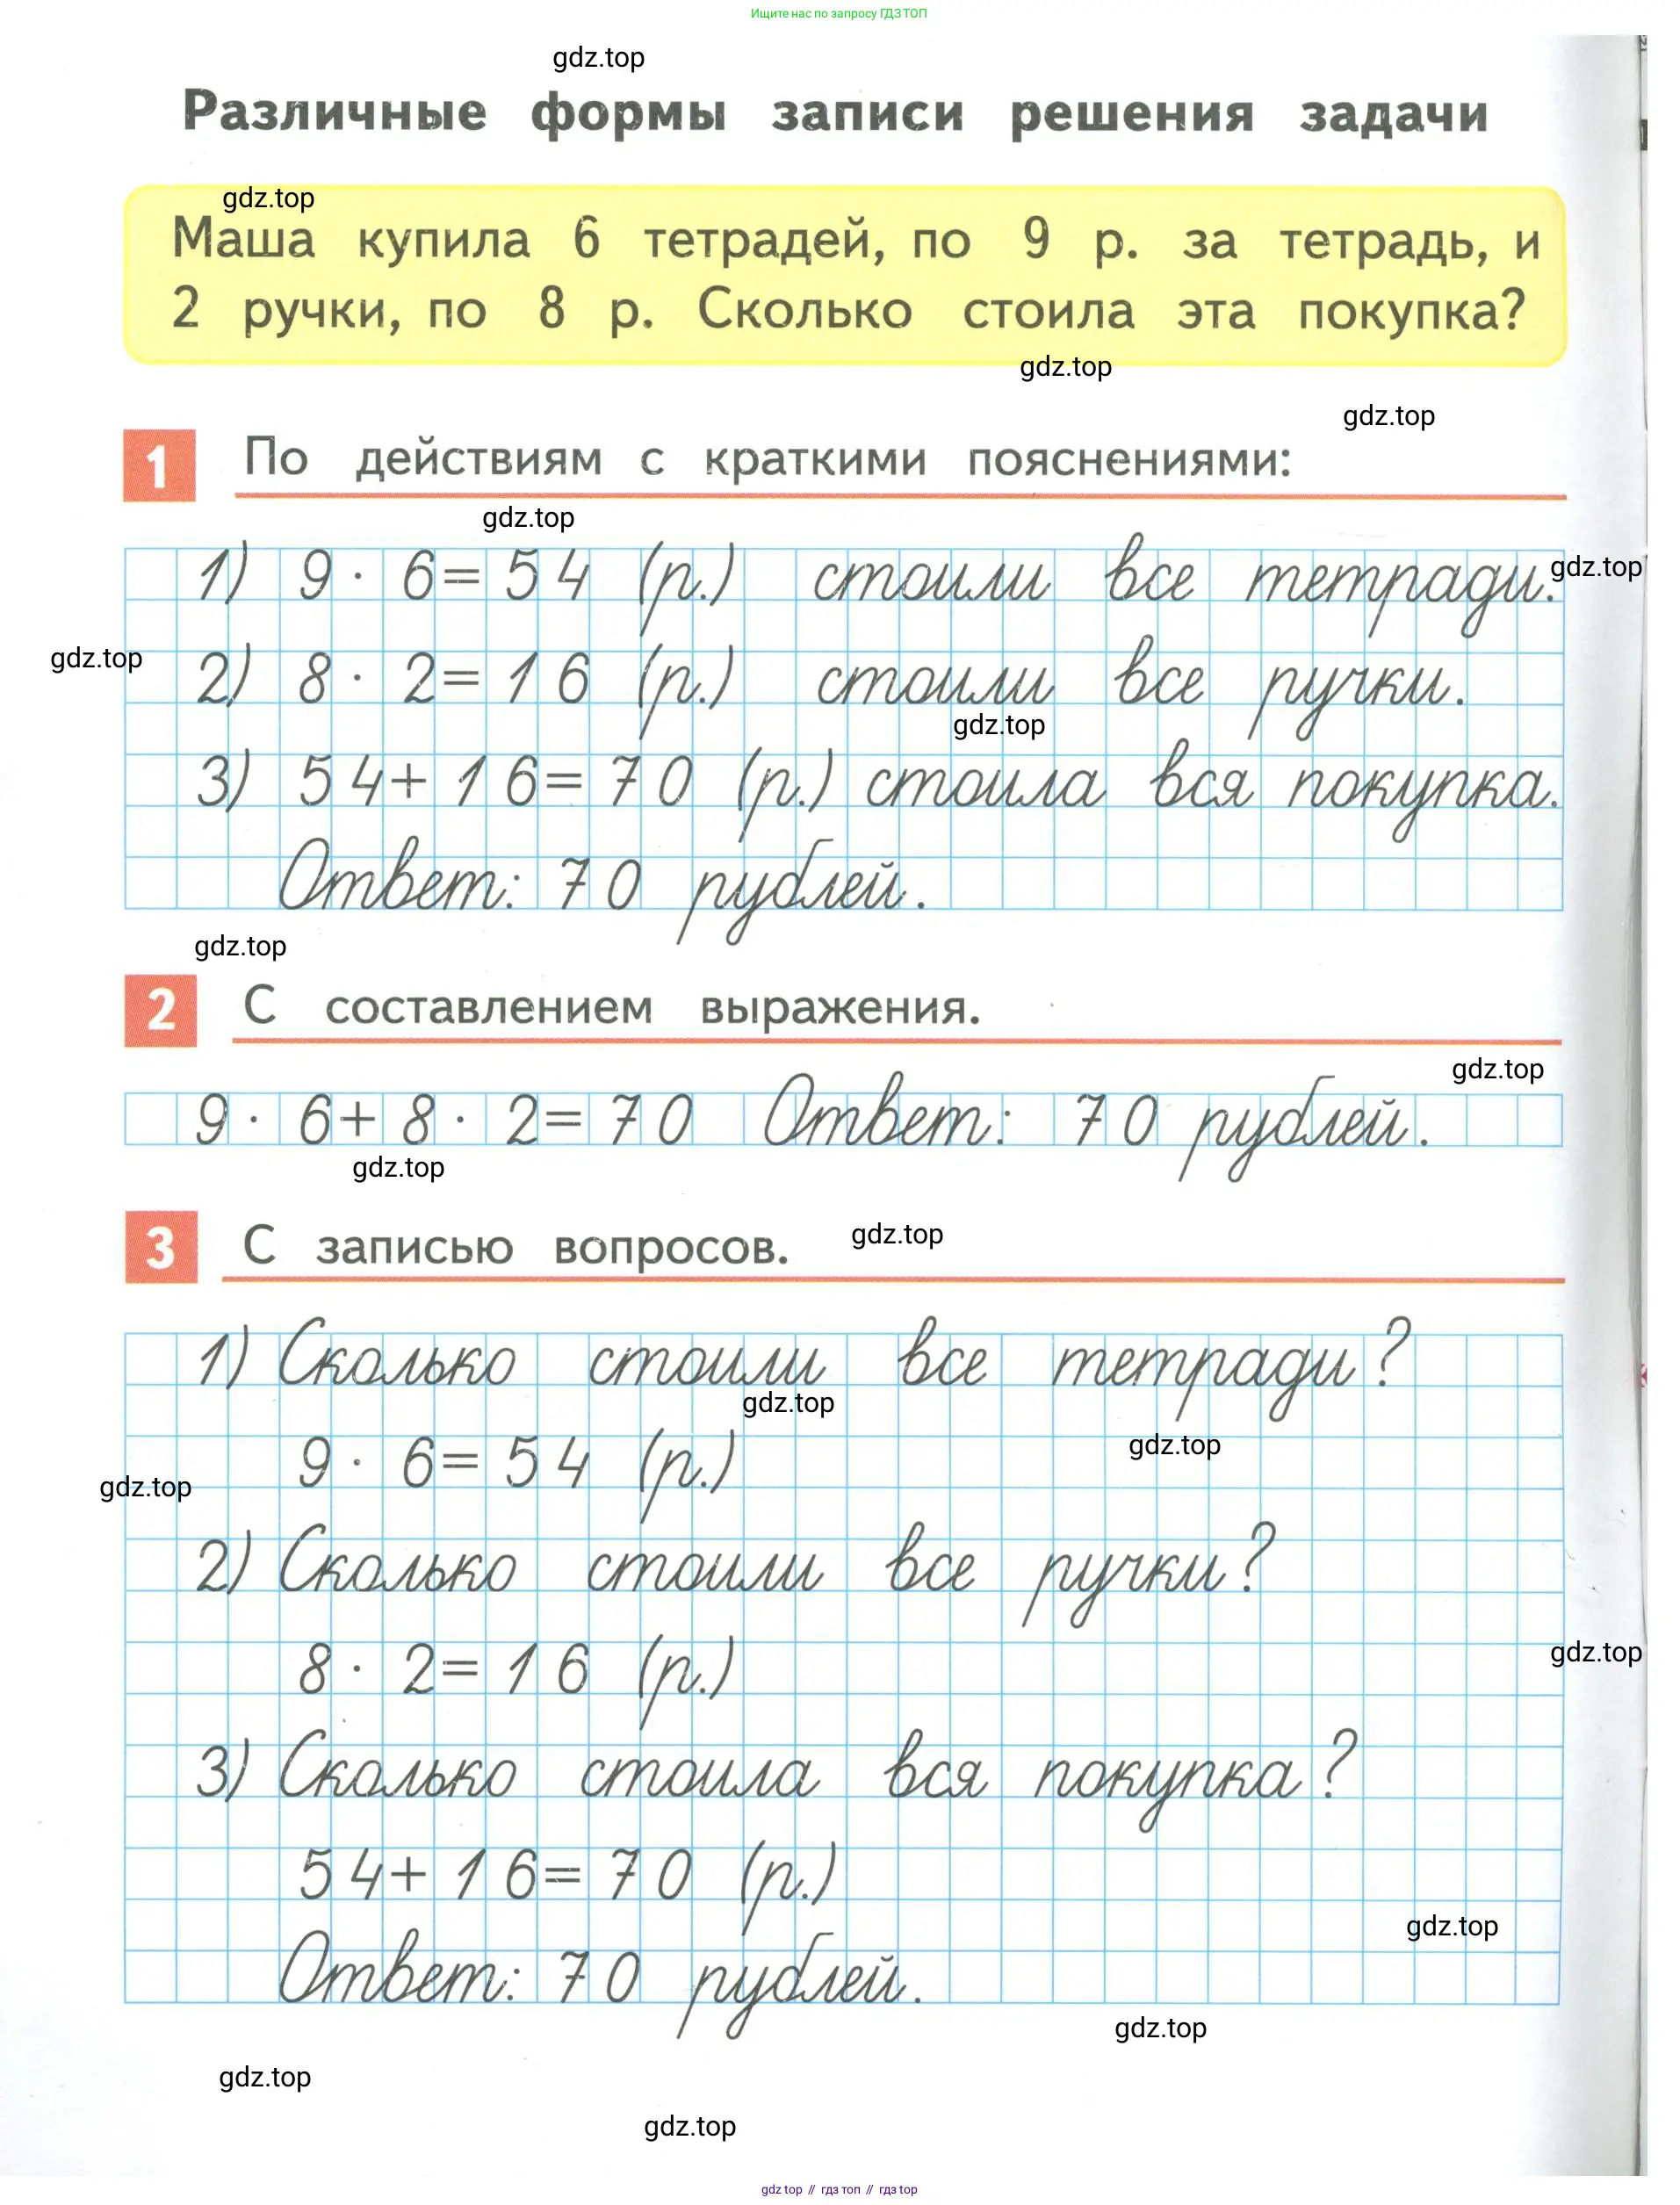 Ищите нас по запросу ГДЗ ТОП
gdz.top
Различные формы записи решения задачи
gdz.top
Маша купила 6 тетрадей, по 9 р. за тетрадь, и
2 ручки, по 8 р. Сколько стоила эта покупка?
gdz.top
gdz.top
1 По действиям с краткими пояснениями:
gdz.top
1) 9 · 6 = 54 (р.) стоили все тетради.
gdz.top
gdz.top
2) 8 · 2 = 16 (р.) стоили все ручки.
gdz.top
3) 54 + 16 = 70 (р.) стоила вся покупка.
Ответ: 70 рублей.
gdz.top
2 С составлением выражения.
gdz.top
9 · 6 + 8 · 2 = 70 Ответ: 70 рублей.
gdz.top
3 С записью вопросов.
gdz.top
1) Сколько стоили все тетради?
gdz.top
gdz.top
9 · 6 = 54 (р.)
gdz.top
2) Сколько стоили все ручки?
gdz.top
8 · 2 = 16 (р.)
3) Сколько стоила вся покупка?
54 + 16 = 70 (р.)
gdz.top
Ответ: 70 рублей.
gdz.top
gdz.top
gdz.top
gdz top // гдз топ // гдз top